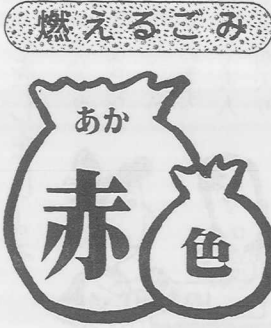 燃えるごみ
あか
赤色